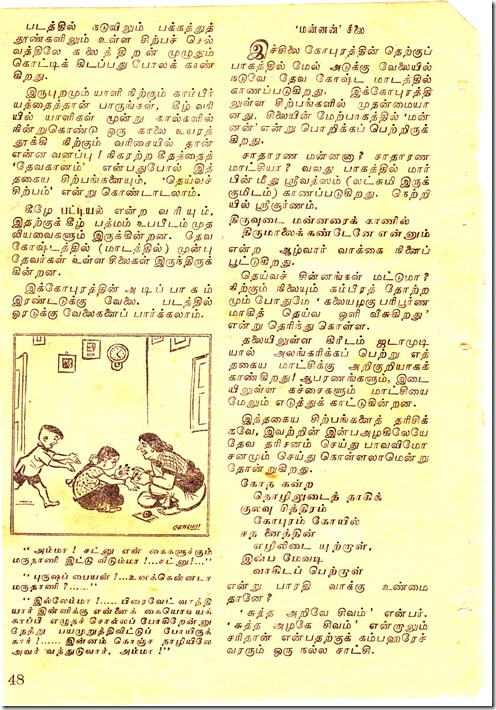 படத்தில் நடுவிலும் பக்கத்துத்
தூண்களிலும் உள்ள சிற்பச் செல்
வத்திலே கலைத்திறன் முழுதும்
கொட்டிக் கிடப்பது போலக் காண்
கிறது.
இருபுறமும் யாளி நிற்கும் காம்பீர்
யத்தைத்தான் பாருங்கள், கீழ் வரி
யில் யாளிகள் மூன்று கால்களில்
நின்றுகொண்டு ஒரு காலை உயரத்
தூக்கி நிற்கும் வரிசையில் தான்
என்ன வனப்பு! நிகரற்ற கீதத்தைத்
'தேவகானம்' என்பதுபோல் இத்
தகைய சிற்பங்களையும், 'தெய்வச்
சிற்பம்' என்று கொண்டாடலாம்.
கீழே பட்டியல் என்ற வரியும்,
இதற்குக் கீழ் பத்மம் உபபீடம் முத
லியவைகளும் இருக்கின்றன. தேவ
கோஷ்டத்தில் (மாடத்தில்) முன்பு
தேவர்கள் உள்ள சிலைகள் இருந்திருக்
கின்றன.
இக்கோபுரத்தின் அடிப் பாகம்
இரண்டடுக்கு வேலை. படத்தில்
ஓரடுக்கு வேலைகளைப் பார்க்கலாம்.
" அம்மா ! சட்னு என் கைகளுக்கும்
மருதாணி இட்டு விடும்மா !...சட்னு!..."
" புருஷப் பையன் !...உனக்கென்னடா
மருதாணி ?......"
" இல்லேம்மா !...... பிரைவேட் வாத்தி
யார் இன்னிக்கு என்னைக் கையொடியக்
காப்பி எழுதச் சொல்லப் போகிறேன்னு
நேத்து பயமுறுத்திவிட்டுப் போயிருக்
கார் !...... இன்னும் கொஞ்ச நாழியிலே
அவர் வந்துடுவார், அம்மா !"
48
'மன்னன்' சிலை
இச்சிலை கோபுரத்தின் தெற்குப்
பாகத்தில் மேல் அடுக்கு வேலையில்
நடுவே தேவ கோஷ்ட மாடத்தில்
காணப்படுகிறது. இக்கோபுரத்தி
லுள்ள சிற்பங்களில் முதன்மையா
னது. சிலையின் மேற்பாகத்தில் 'மன்
னன்' என்று பொறிக்கப் பெற்றிருக்
கிறது.
சாதாரண மன்னனா? சாதாரண
மாட்சியா? வலது பாகத்தில் மார்
பின் மீது ஸ்ரீவத்ஸம் (லட்சுமி இருக்
குமிடம்) காணப்படுகிறது. நெற்றி
யில் ஸ்ரீசூர்ணம்.
திருவுடை மன்னரைக் காணில்
திருமாலைக் கண்டேனே என்னும்
என்ற ஆழ்வார் வாக்கை நினைப்
பூட்டுகிறது.
தெய்வச் சின்னங்கள் மட்டுமா?
நிற்கும் நிலையும் கம்பீரத் தோற்ற
மும் போதுமே ' கலையழகு பரிபூர்ண
மாகித் தெய்வ ஒளி வீசுகிறது'
என்று தெரிந்து கொள்ள.
தலையிலுள்ள கிரீடம் ஜடாமுடி
யால் அலங்கரிக்கப் பெற்று எத்
தகைய மாட்சிக்கு அறிகுறியாகக்
காண்கிறது! ஆபரணங்களும், இடை
யிலுள்ள கச்சைகளும் மாட்சியை
மேலும் எடுத்துக் காட்டுகின்றன.
இத்தகைய சிற்பங்களைத் தரிசிக்
கவே, இவற்றின் இன்பஅழகிலேயே
தேவ தரிசனம் செய்து பாவவிமோ
சனமும் செய்து கொள்ளலாமென்று
தோன்றுகிறது.
கோத கன்ற
தொழிலுடைத் தாகிக்
குலவு சித்திரம்
கோபுரம் கோயில்
ஈத னைத்தின்
எழிலிடை யுற்றாள்,
இன்ப மேவடி
வாகிடப் பெற்றாள்
என்று பாரதி வாக்கு உண்மை
தானே?
' சுத்த அறிவே சிவம்' என்பர்.
' சுத்த அழகே சிவம்' என்றாலும்
சரிதான் என்பதற்குக் கம்பஹரேச்
வரரும் ஒரு நல்ல சாட்சி.